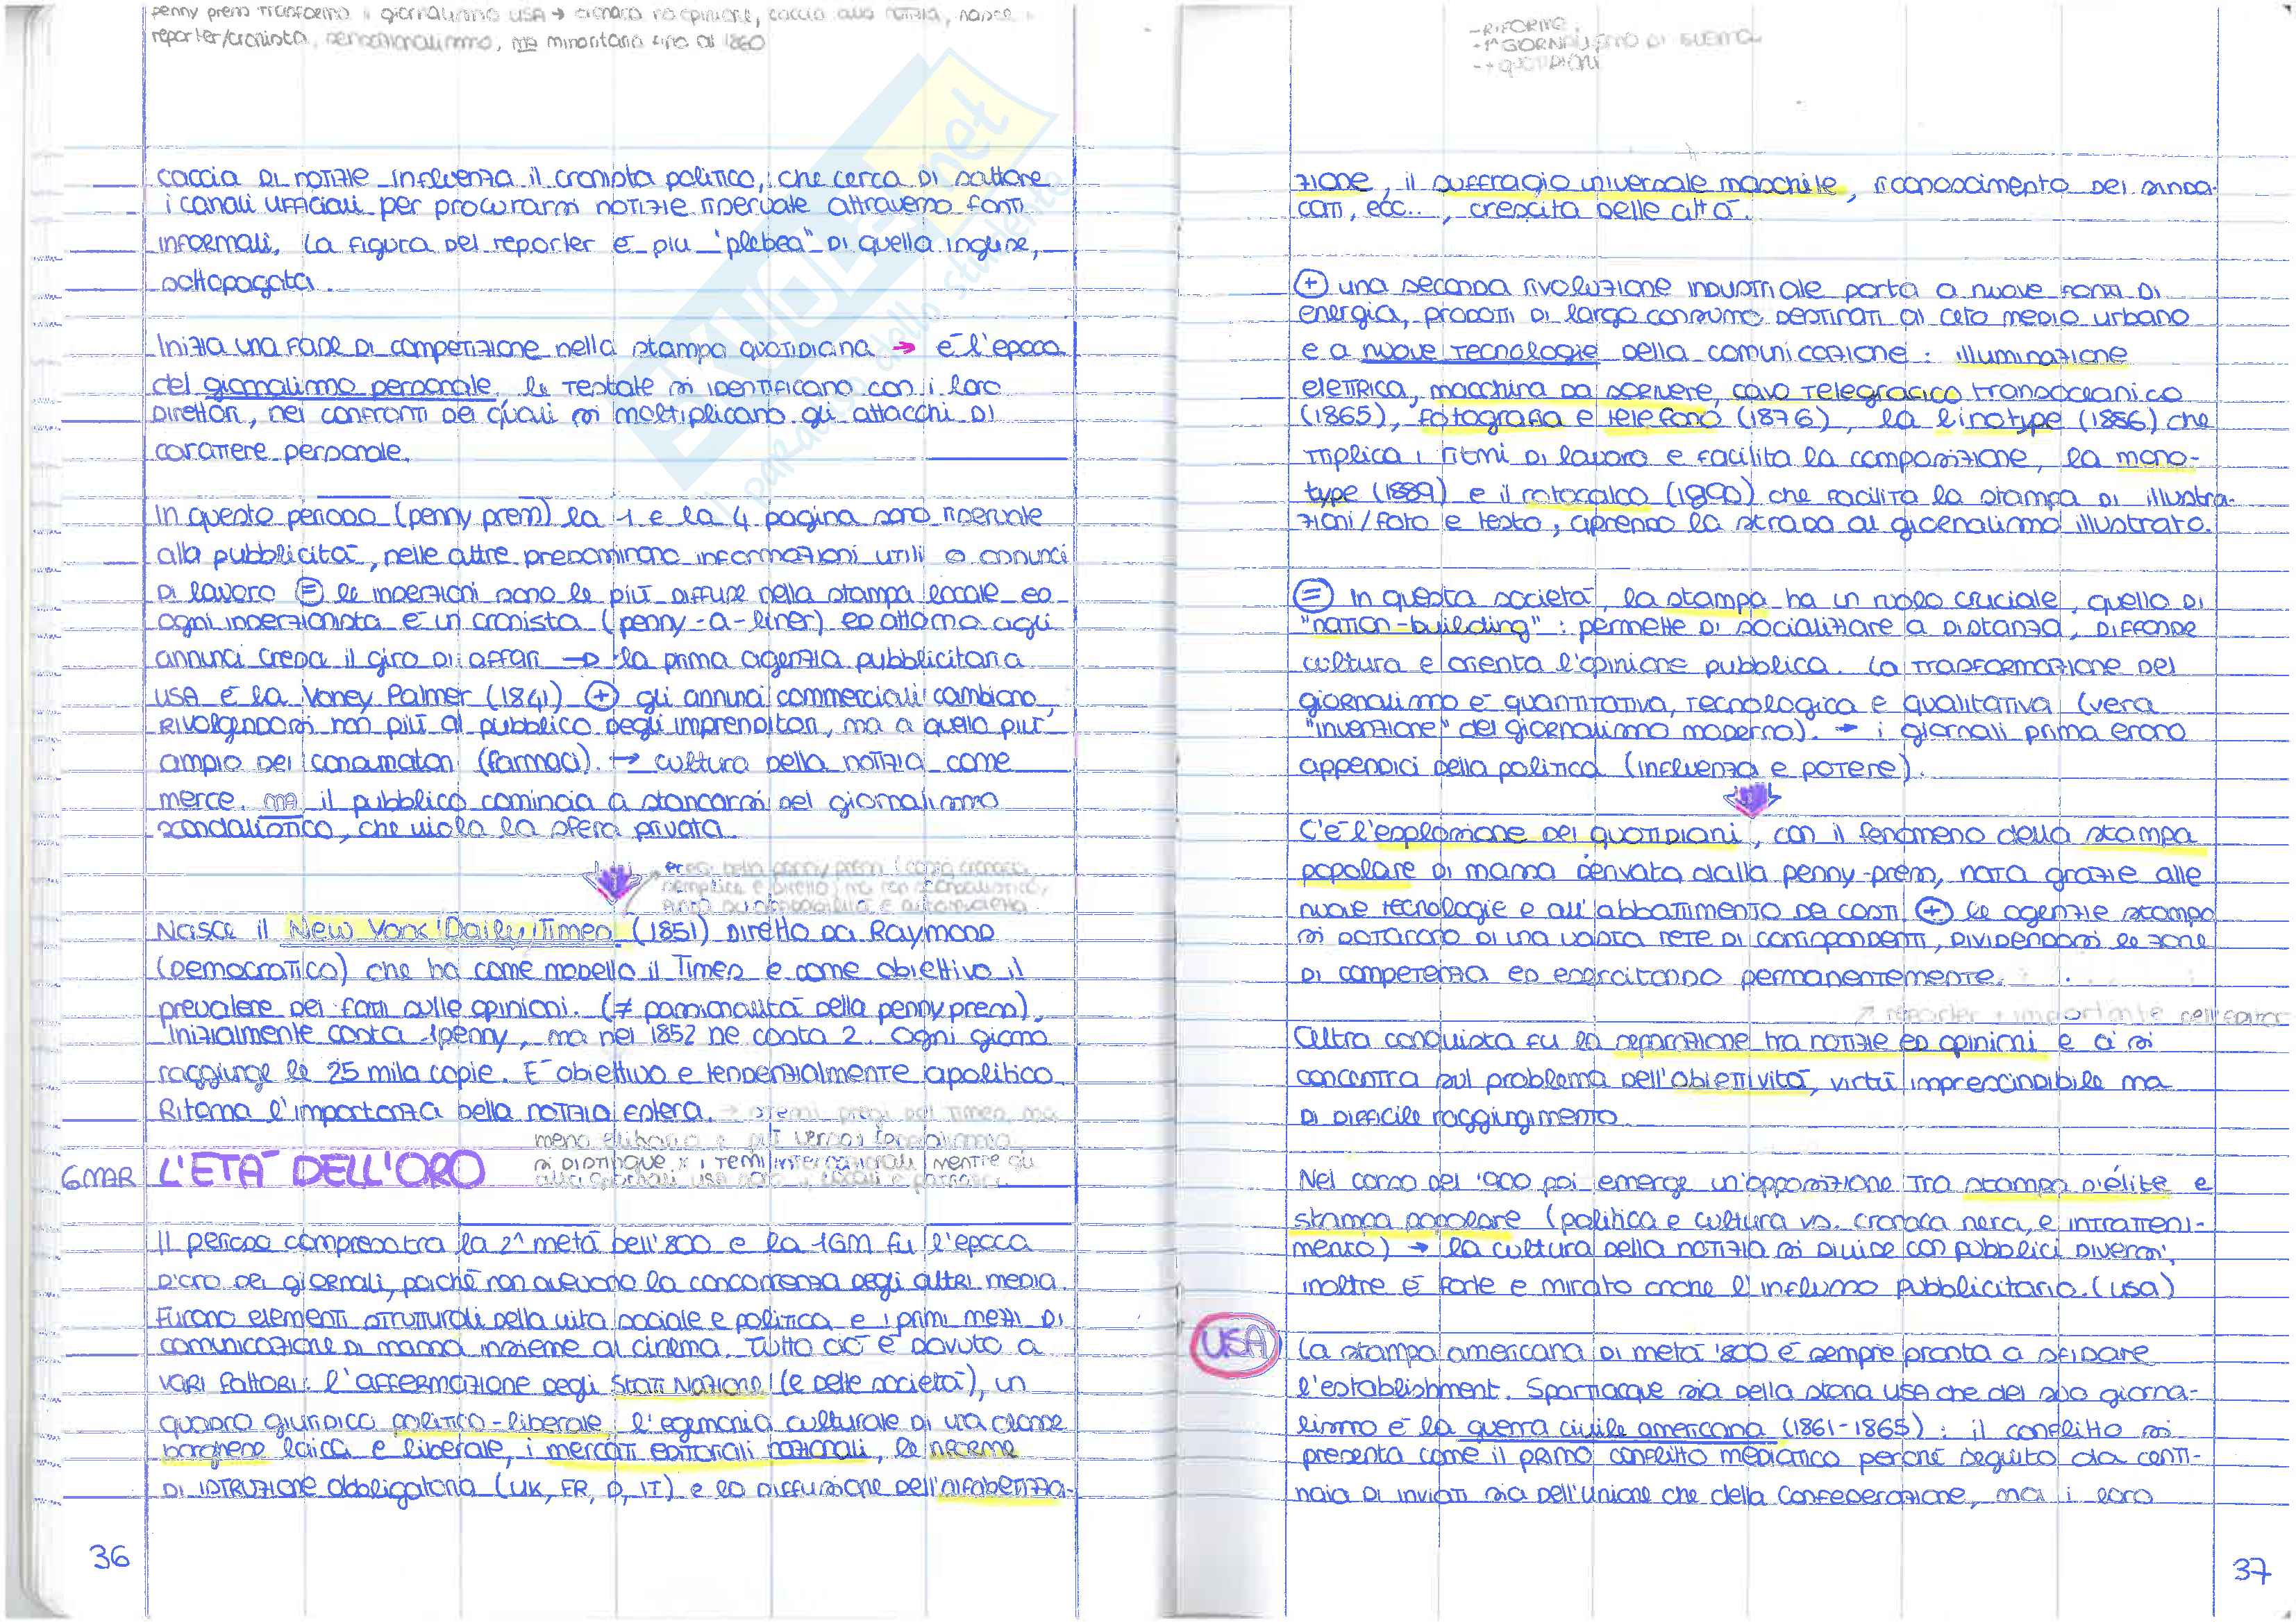 penny press trasforma il giornalismo USA → cronaca no opinioni, caccia alla notizia, nasce il
reporter/cronista, sensazionalismo, ma minoritaria fino al 1860
caccia di notizie influenza il cronista politico, che cerca di saltare
i canali ufficiali per procurarsi notizie riservate attraverso fonti
informali. La figura del reporter è più "plebea" di quella inglese,
sottopagata.
Inizia una fase di competizione nella stampa quotidiana → è l'epoca
del giornalismo personale, le testate si identificano con i loro
direttori, nei confronti dei quali si moltiplicano gli attacchi di
carattere personale.
In questo periodo (penny press) la 1 e la 4 pagina sono riservate
alla pubblicità, nelle altre predominano informazioni utili o annunci
di lavoro = le inserzioni sono le più diffuse nella stampa locale ed
ogni inserzionista è un cronista (penny-a-liner) ed attorno agli
annunci cresce il giro di affari → la prima agenzia pubblicitaria
USA è la Voney Palmer (1841) + gli annunci commerciali cambiano,
rivolgendosi non più al pubblico degli imprenditori, ma a quello più
ampio dei consumatori (farmaci). → cultura della notizia come
merce. ma il pubblico comincia a stancarsi del giornalismo
scandalistico, che viola la sfera privata.
della penny press cronaca
semplice e diretto, ma non scandalistico,
Nasce il New York Daily Times (1851) diretto da Raymond
(democratico) che ha come modello il Times e come obiettivo il
prevalere dei fatti sulle opinioni. (≠ passionalità della penny press).
Inizialmente costa 1 penny, ma nel 1852 ne costa 2. Ogni giorno
raggiunge le 25 mila copie. È obiettivo e tendenzialmente apolitico.
Ritorna l'importanza della notizia estera. → stessi pregi del Times, ma
meno elitario e più
si distingue x i temi internazionali mentre gli
altri giornali USA sono + locali e
6 MAR L'ETÀ DELL'ORO
Il periodo compreso tra la 2^ metà dell'800 e la 1GM fu l'epoca
d'oro dei giornali, poiché non avevano la concorrenza degli altri media.
Furono elementi strutturali della vita sociale e politica e i primi mezzi di
comunicazione di massa insieme al cinema. Tutto ciò è dovuto a
vari fattori: l'affermazione degli Stati Nazione (e delle società), un
quadro giuridico politico-liberale, l'egemonia culturale di una classe
borghese laica e liberale, i mercati editoriali nazionali, le riforme
di istruzione obbligatoria (UK, FR, D, IT) e la diffusione dell'alfabetizza-
36
-RIFORME
-1° GIORNALISMO DI GUERRA
-+ QUOTIDIANI
zione, il suffragio universale maschile, riconoscimento dei sinda-
cati, ecc.., crescita delle città.
+ una seconda rivoluzione industriale porta a nuove fonti di
energia, prodotti di largo consumo destinati al ceto medio urbano
e a nuove tecnologie della comunicazione: illuminazione
elettrica, macchina da scrivere, cavo telegrafico transoceanico
(1865), fotografia e telefono (1876), la linotype (1886) che
triplica i ritmi di lavoro e facilita la composizione, la mono-
type (1889) e il rotocalco (1890) che facilita la stampa di illustra-
zioni/foto e testo, aprendo la strada al giornalismo illustrato.
= In questa società, la stampa ha un ruolo cruciale, quello di
"nation-building": permette di socializzare a distanza, diffonde
cultura e orienta l'opinione pubblica. La trasformazione del
giornalismo è quantitativa, tecnologica e qualitativa (vera
"invenzione" del giornalismo moderno). → i giornali prima erano
appendici della politica (influenza e potere).
C'è l'esplosione dei quotidiani, con il fenomeno della stampa
popolare di massa derivata dalla penny-press, nata grazie alle
nuove tecnologie e all'abbattimento dei costi + le agenzie stampa
si dotarono di una vasta rete di corrispondenti, dividendosi le zone
di competenza ed esercitando permanentemente.
↗ reporter + importante dell'editor
Altra conquista fu la separazione tra notizie ed opinioni e ci si
concentra sul problema dell'obiettività, virtù imprescindibile ma
di difficile raggiungimento.
Nel corso del '900 poi emerge un'opposizione tra stampa d'élite e
stampa popolare (politica e cultura vs. cronaca nera, e intratteni-
mento) → la cultura della notizia si divide con pubblici diversi,
inoltre è forte e mirato anche l'influsso pubblicitario. (USA)
USA La stampa americana di metà '800 è sempre pronta a sfidare
l'establishment. Spartiacque sia della storia USA che del suo giorna-
lismo è la guerra civile americana (1861-1865): il conflitto si
presenta come il primo conflitto mediatico perché seguito da centi-
naia di inviati sia dell'Unione che della Confederazione, ma i loro
37